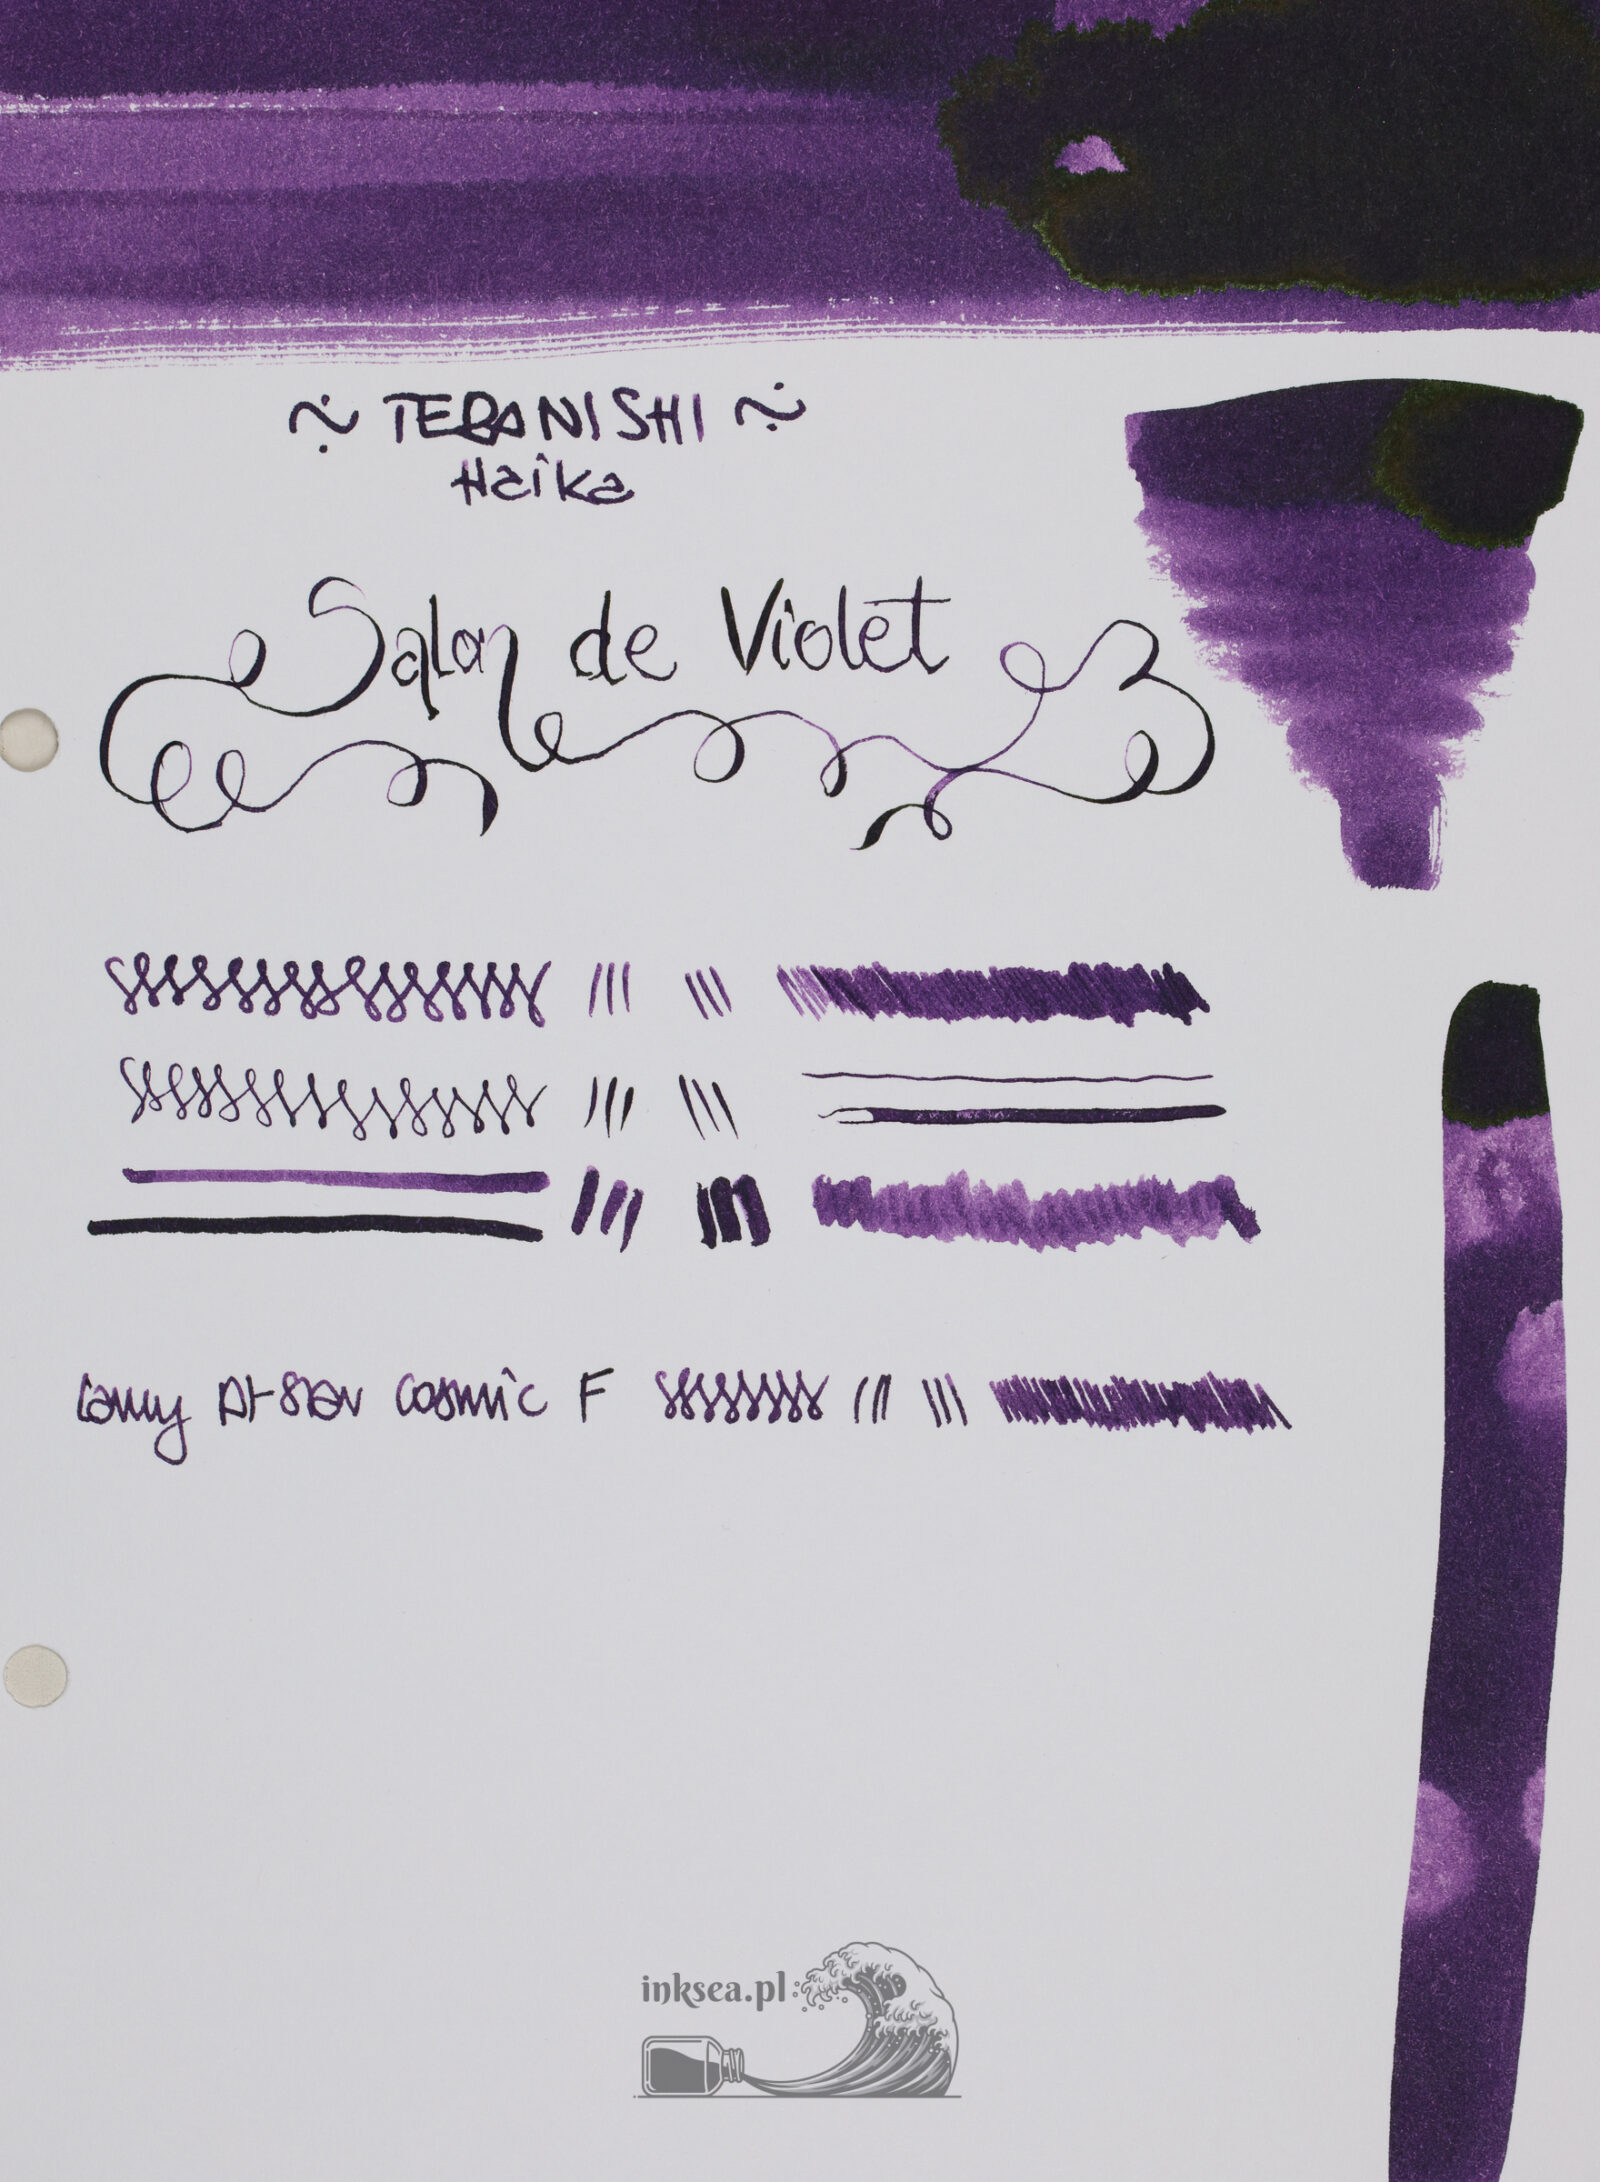 ~ TERANISHI ~
Haika
Salon de Violet
Lamy Al-Star Cosmic F
inksea.pl